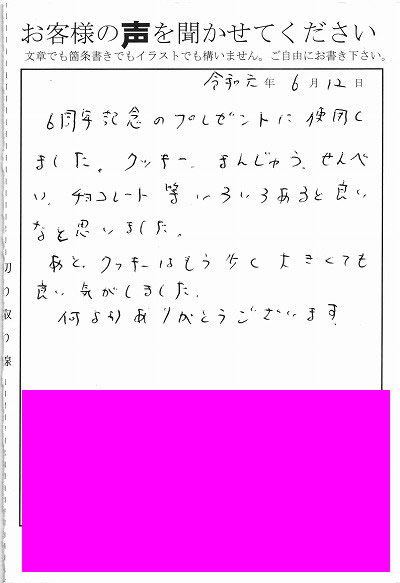 お客様の声を聞かせてください
文章でも箇条書きでもイラストでも構いません。ご自由にお書き下さい。
令和元年 6月12日
6周年記念のプレゼントに使用し
ました。クッキー、まんじゅう、せんべ
い、チョコレート等いろいろあると良い
なと思いました。
あと、クッキーはもう少し大きくても
良い気がしました。
何よりありがとうございます
切り取り線